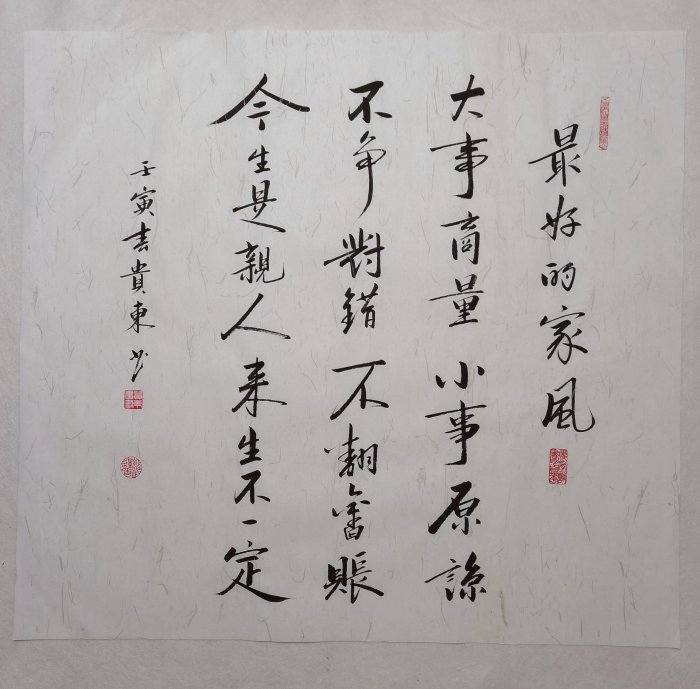 最好的家风
大事商量小事原諒
不争對錯不翻舊賬
今生是親人来生不一定
壬寅春貴東书